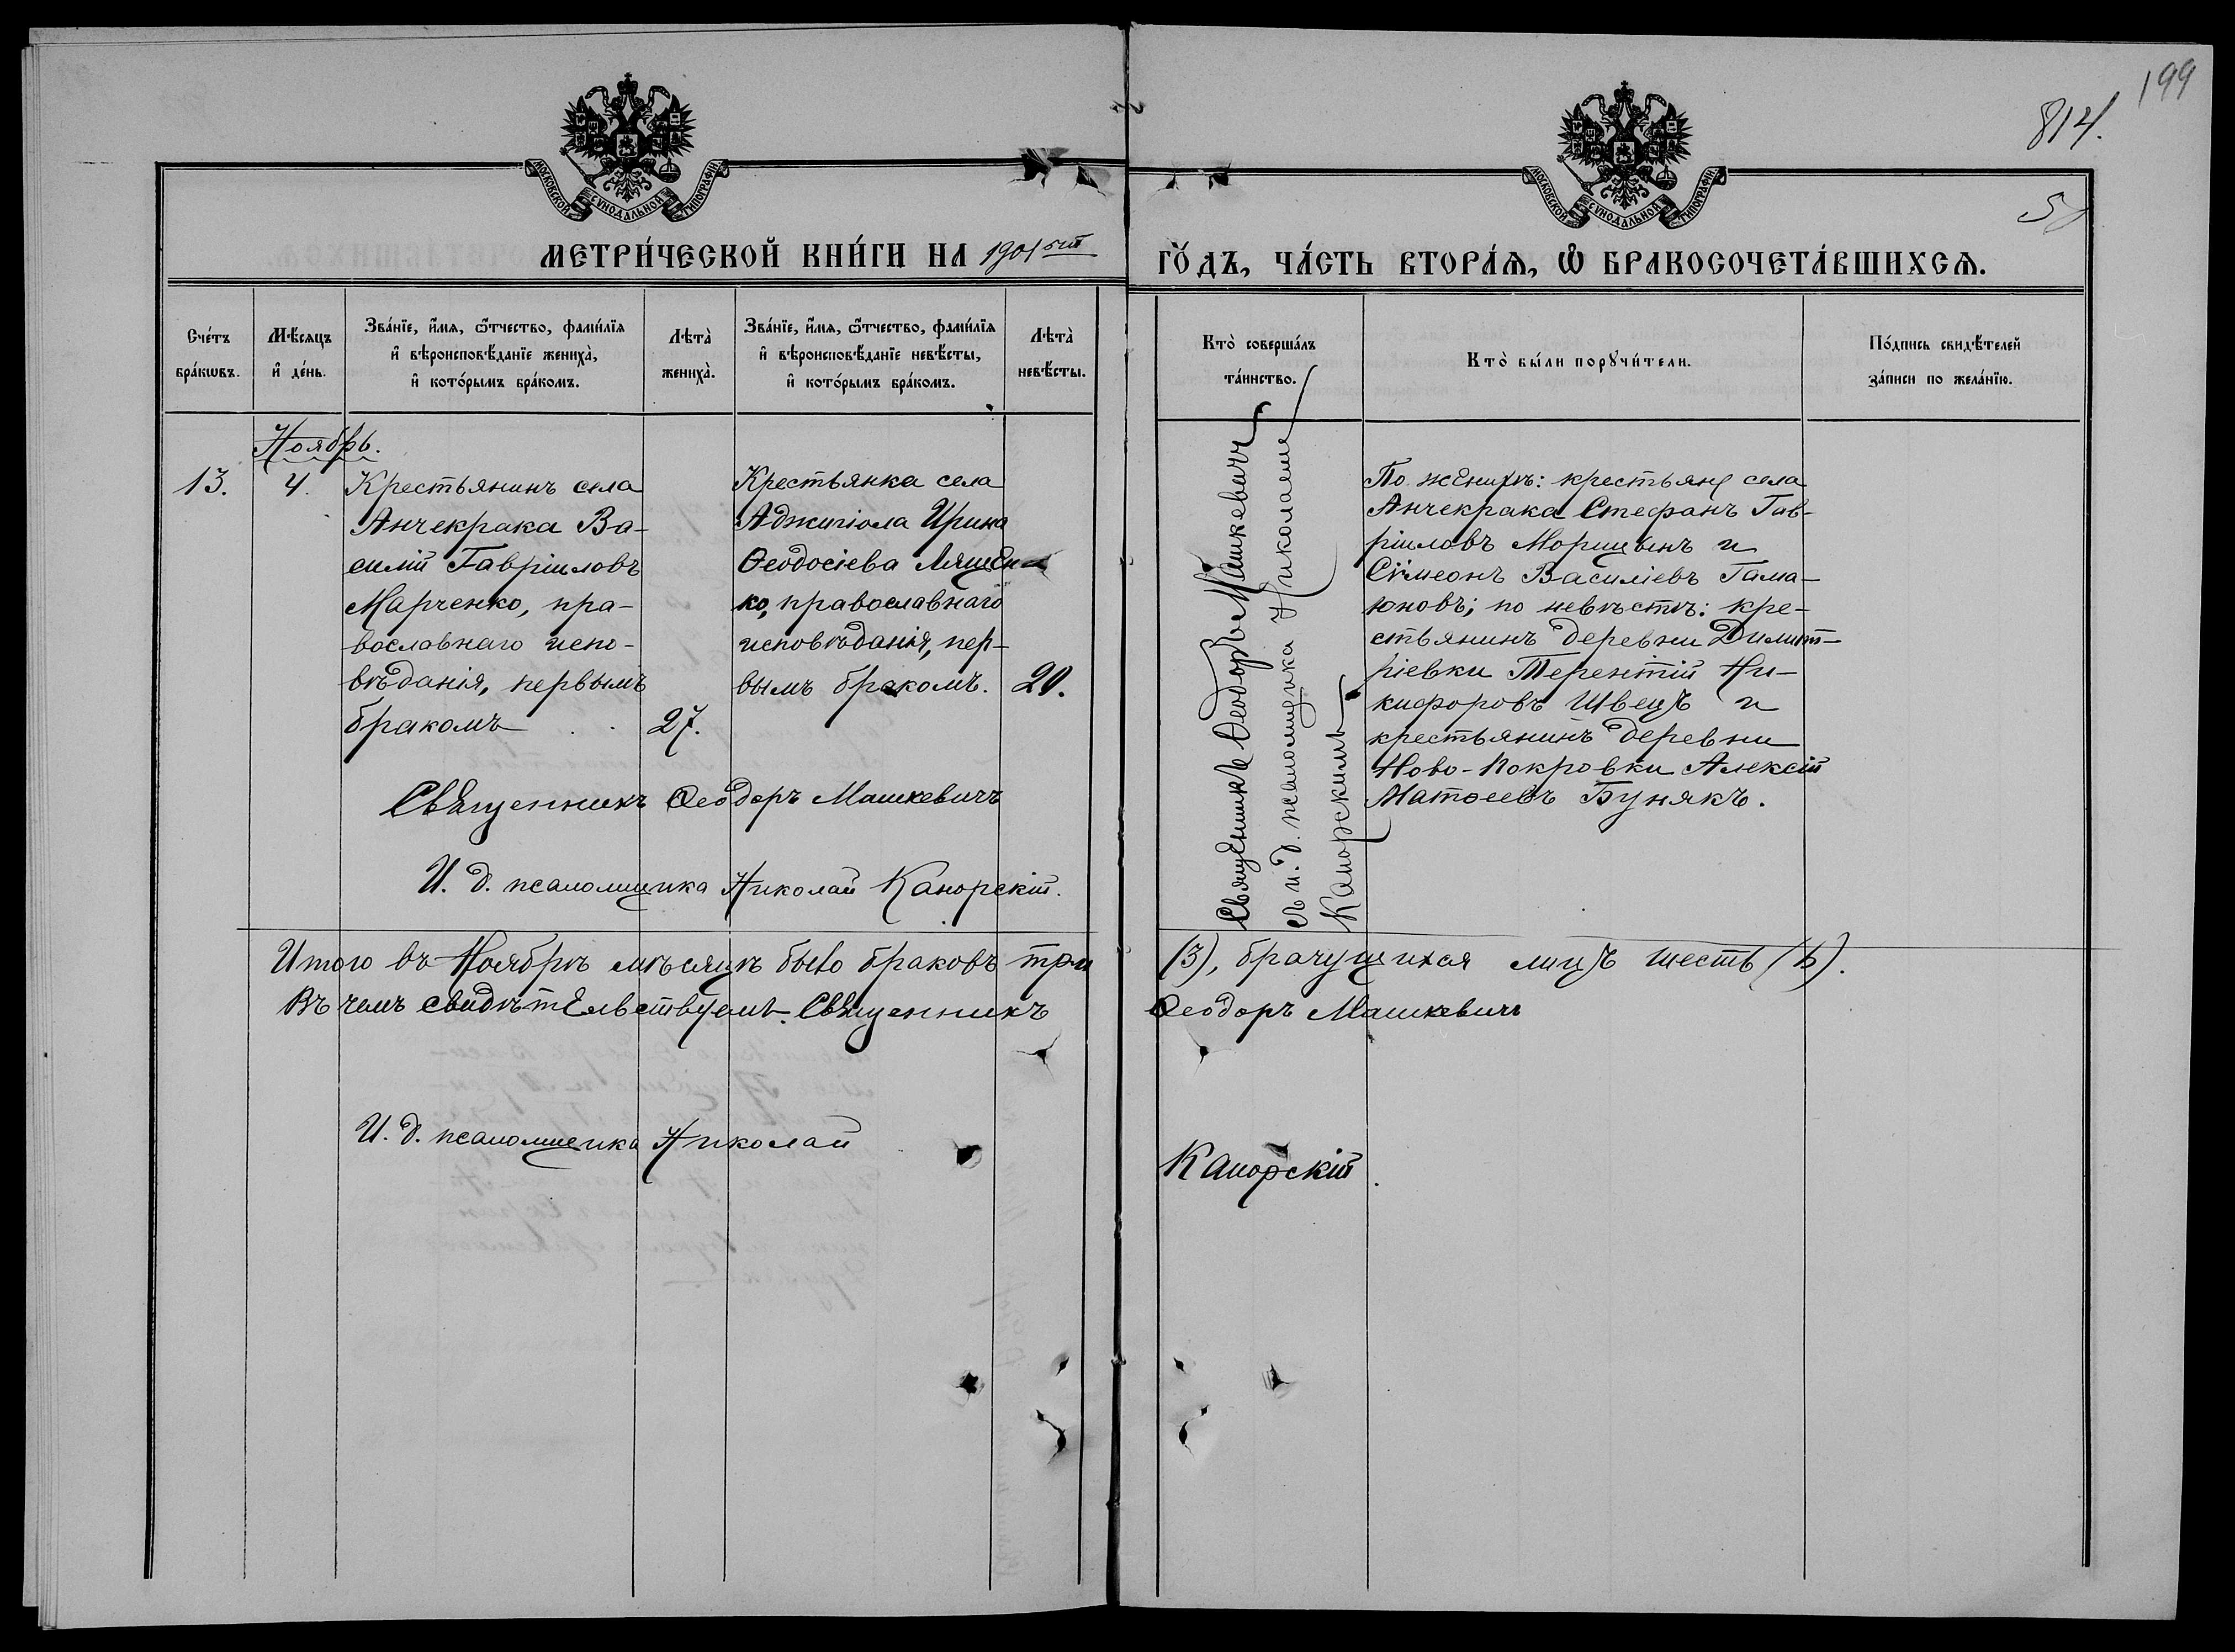 199
814.
МОСКОВСКОЙ СѴНОДАЛЬНОЙ ТИПОГРАФІИ
МОСКОВСКОЙ СѴНОДАЛЬНОЙ ТИПОГРАФІИ
МЕТРИ́ЧЕСКОЙ КНИ́ГИ НА 1901ый
ГО́ДЪ, ЧА́СТЬ ВТОРА́Ѧ, Ѽ БРАКОСОЧЕТА́ВШИХСѦ.
Сче́тъ бра́кѡвъ.
Мѣ́сяцъ и҆ де́нь.
Зва́нїе, и҆́мѧ, ѻ҆́тчество, фами́лїѧ
и҆ вѣроисповѣ́данїе жениха̀,
и҆ кото́рымъ бра́комъ.
Лѣта̀ жениха̀.
Зва́нїе, и҆́мѧ, ѻ҆́тчество, фами́лїѧ
и҆ вѣроисповѣ́данїе невѣ́сты,
и҆ кото́рымъ бра́комъ.
Лѣта̀ невѣ́сты.
Кто̀ соверша́лъ
та́инство.
Кто̀ бы́ли порꙋчи́тели.
По́дпись свидѣ́телей
за́писи по жела́нїю.
Ноябрь.
13.
4.
Крестьянинъ села
Анчекрака Ва-
силій Гавріиловъ
Марченко, пра-
вославнаго испо-
вѣданія, первымъ
бракомъ
27.
Крестьянка села
Аджигіола Ирина
Ѳеодосіева Лящен-
ко, православнаго
исповѣданія, пер-
вымъ бракомъ.
20.
Священникъ Ѳеодоръ Машкевичъ
съ и. д. псаломщика Николаемъ
Канорскимъ
По женихѣ: крестьяне села
Анчекрака Стефанъ Гав-
ріиловъ Морицынъ и
Сѵмеонъ Василіевъ Гама-
юновъ; по невѣстѣ: кре-
стьянинъ деревни Димит-
ріевки Терентій Ни-
кифоровъ Швецъ и
крестьянинъ деревни
Ново-Покровки Алексій
Матѳеевъ Бунякъ.
Священникъ Ѳеодоръ Машкевичъ
И. д. псаломщика Николай Канорскій.
Итого въ Ноябрѣ мѣсяцѣ было браковъ три (3), брачущихся лицъ шесть (6).
Въ чемъ свидѣтельствуемъ. Священникъ Ѳеодоръ Машкевичъ
И. д. псаломщика Николай Канорскій.